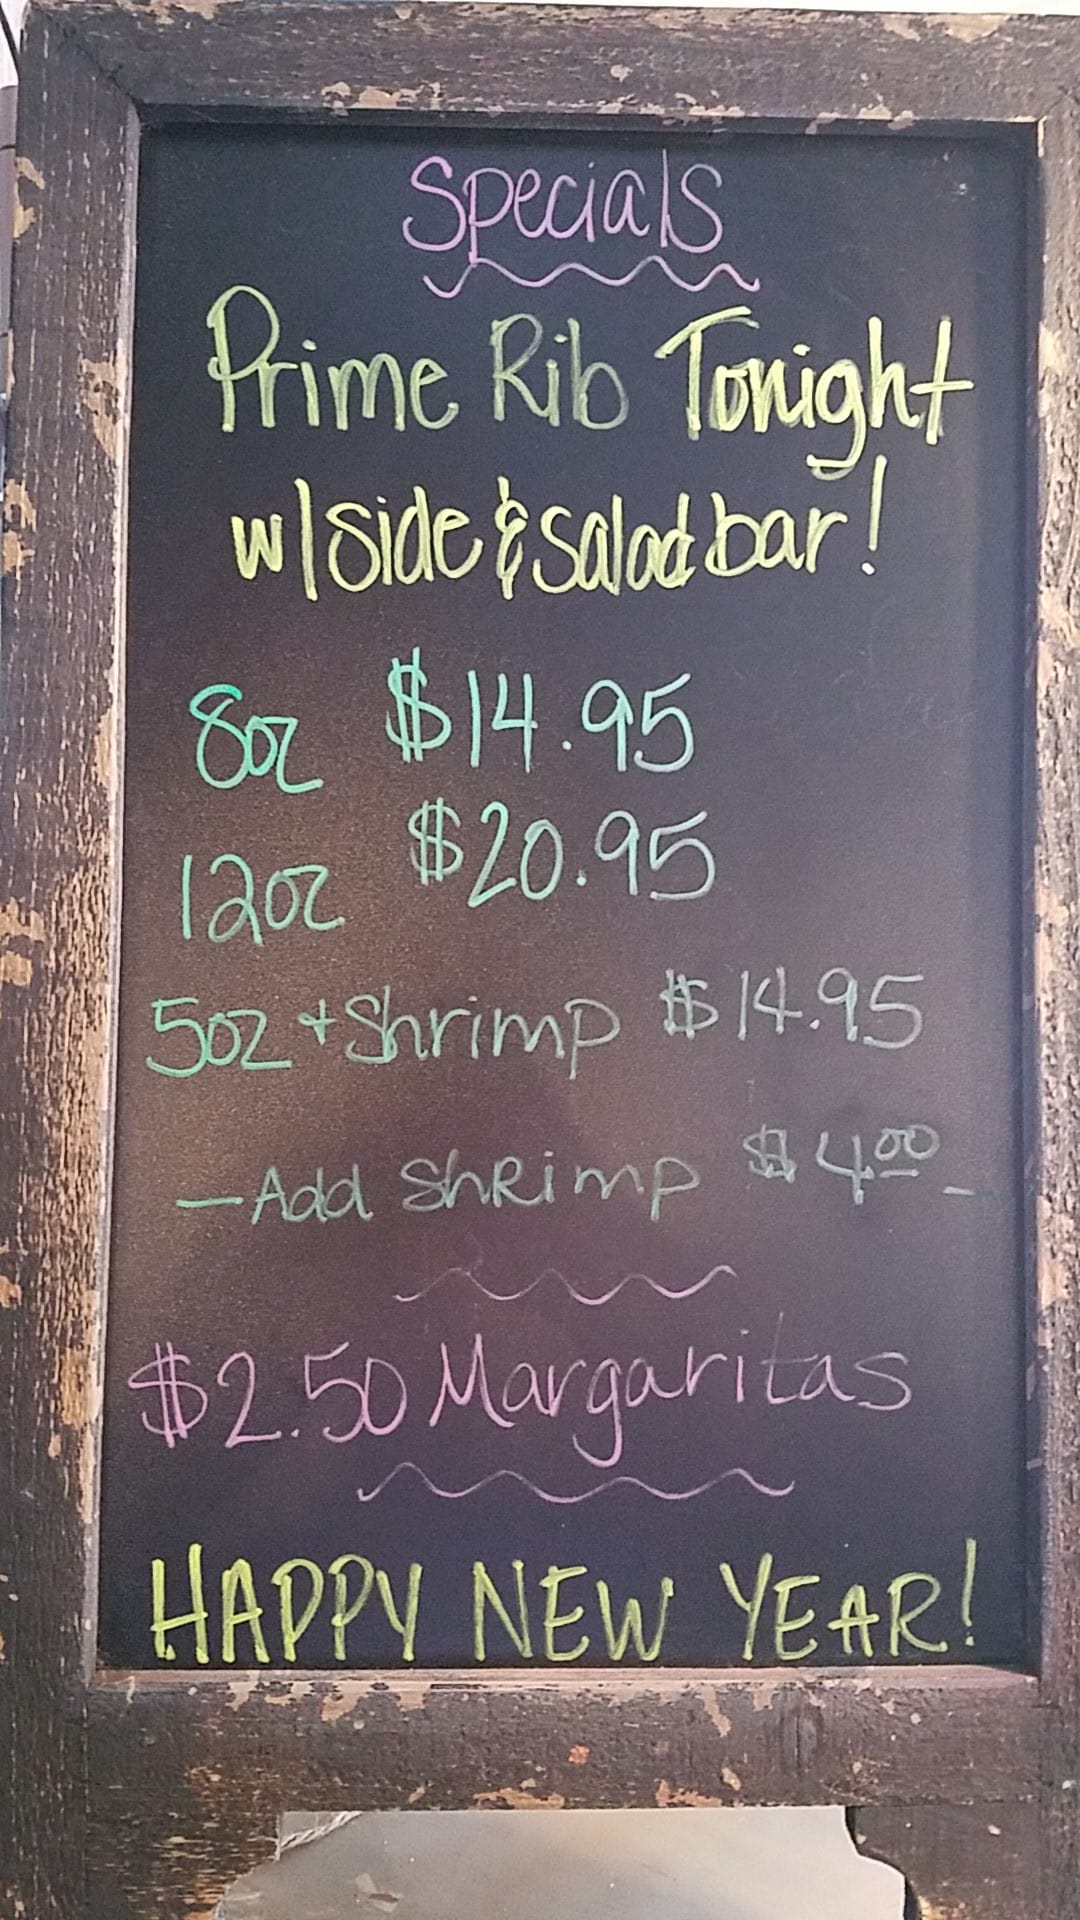 Specials
Prime Rib Tonight
w/side & salad bar!
8oz $14.95
12oz $20.95
5oz + Shrimp $14.95
- Add ShRimp $4.00 -
$2.50 Margaritas
HAPPY NEW YEAR!